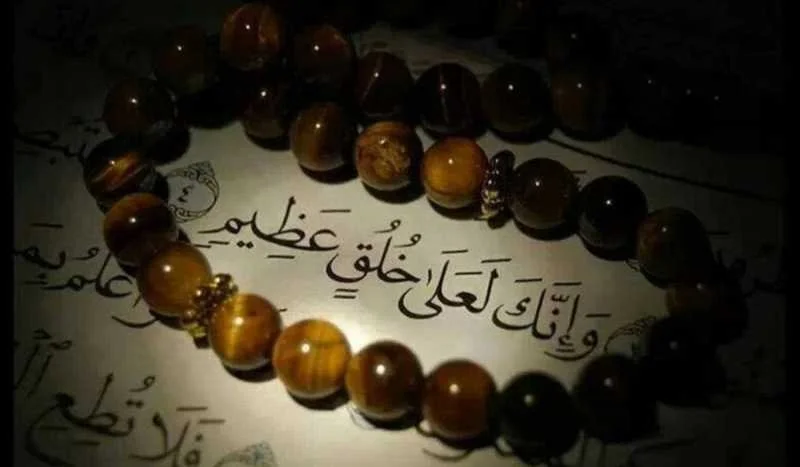 وَإِنَّكَ لَعَلَىٰ خُلُقٍ عَظِيمٍ ٤
أَعْلَمُ بِمَ
فَلَا تُطِعِ